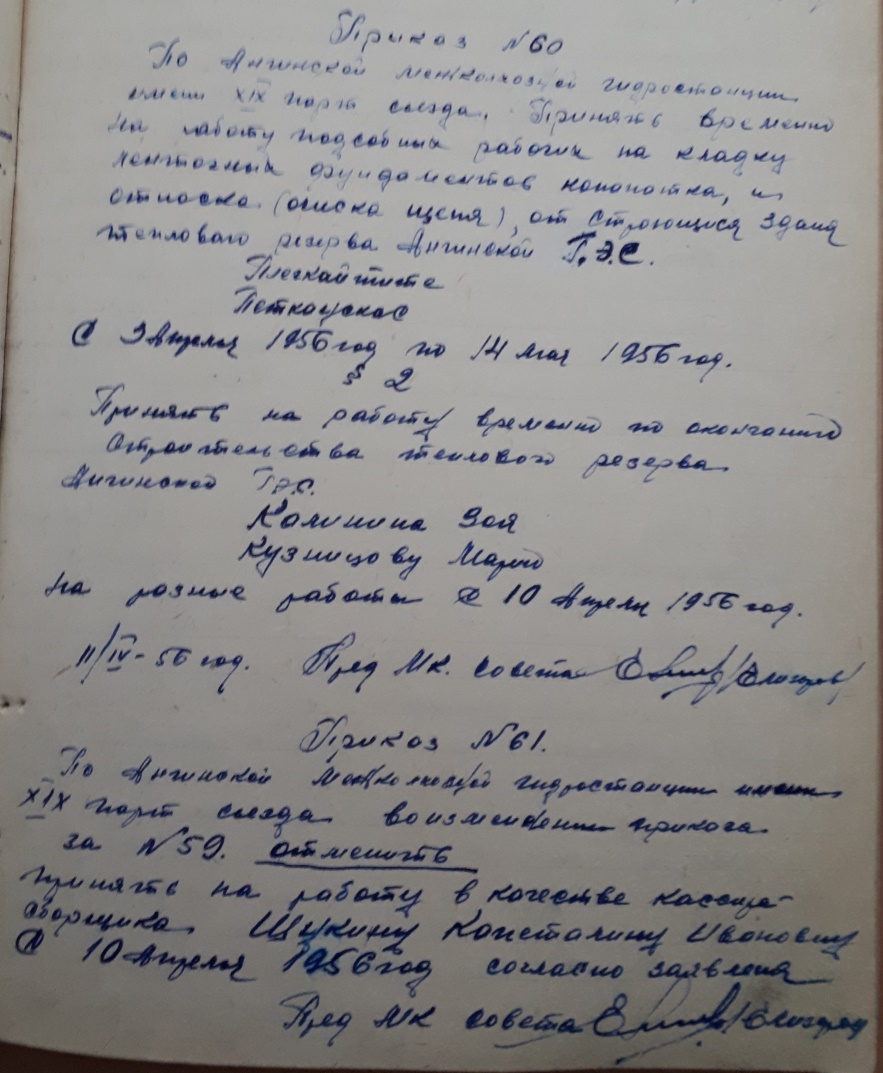 Приказ N60
По Ангинской межколхозной гидростанции
имени XIX парт съезда. Принять временно
на работу подсобных рабочих на кладку
ленточных фундаментов копкотка, и
относка (очиска щепя), от строющися здания
теплового резерва Ангинской Г.Э.С.
Плескайтите
Петкаускас
С 9 Апреля 1956 год по 14 мая 1956 год.
§ 2
Принять на работу временно по окончанию
строительства теплового резерва
Ангинской ГЭС.
Калинина Зоя
Кузницову Марию
на разные работы с 10 Апреля 1956 год.
11/IV-56 год. Пред Мк. совета /Елизаров/
Приказ N61.
По Ангинской межколхозной гидростанции имени
XIX парт съезда воизменении приказа
за N59. отменить
принять на работу в качестве кассира-
сборщика Щукину Константину Ивановну
С 10 Апреля 1956 год согласно заявления
Пред Мк совета /Елизаров